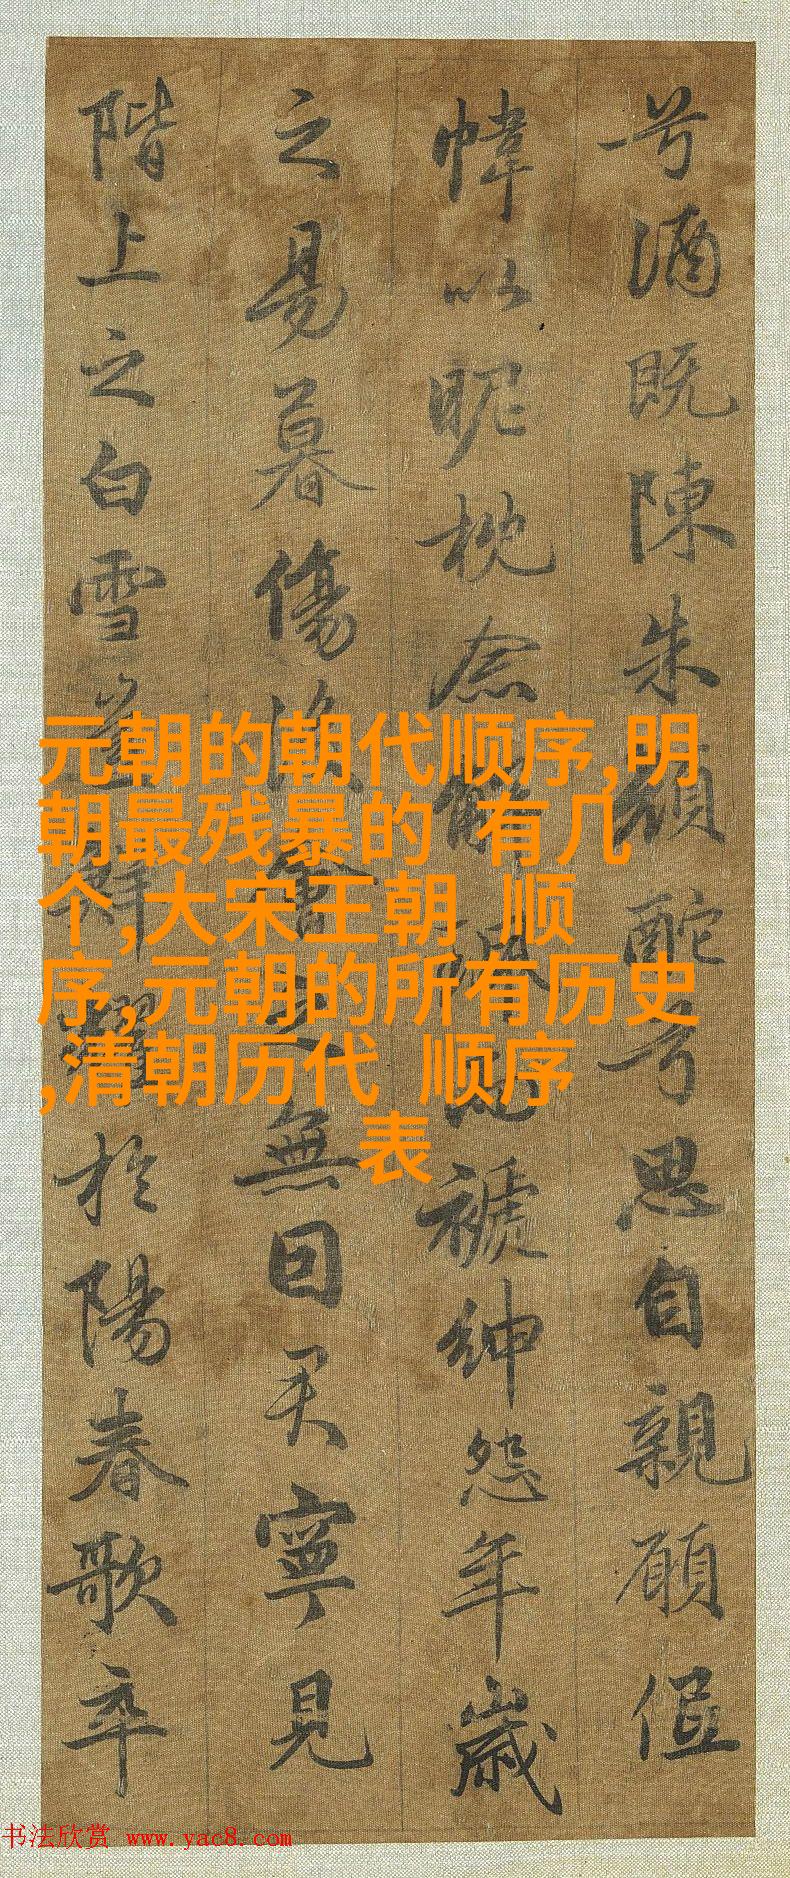 兮酒既陳朱顏酡兮思自親願低
幃以昵枕念解珮而褫紳怨年歲
之易暮傷後會之無因君寧見
階上之白雪豈鮮耀於陽春歌卒
元朝的朝代顺序,明
朝最残暴的 有几
个,大宋王朝 顺
序,元朝的所有历史
,清朝历代 顺序
表
书法欣赏 www.yac8.com